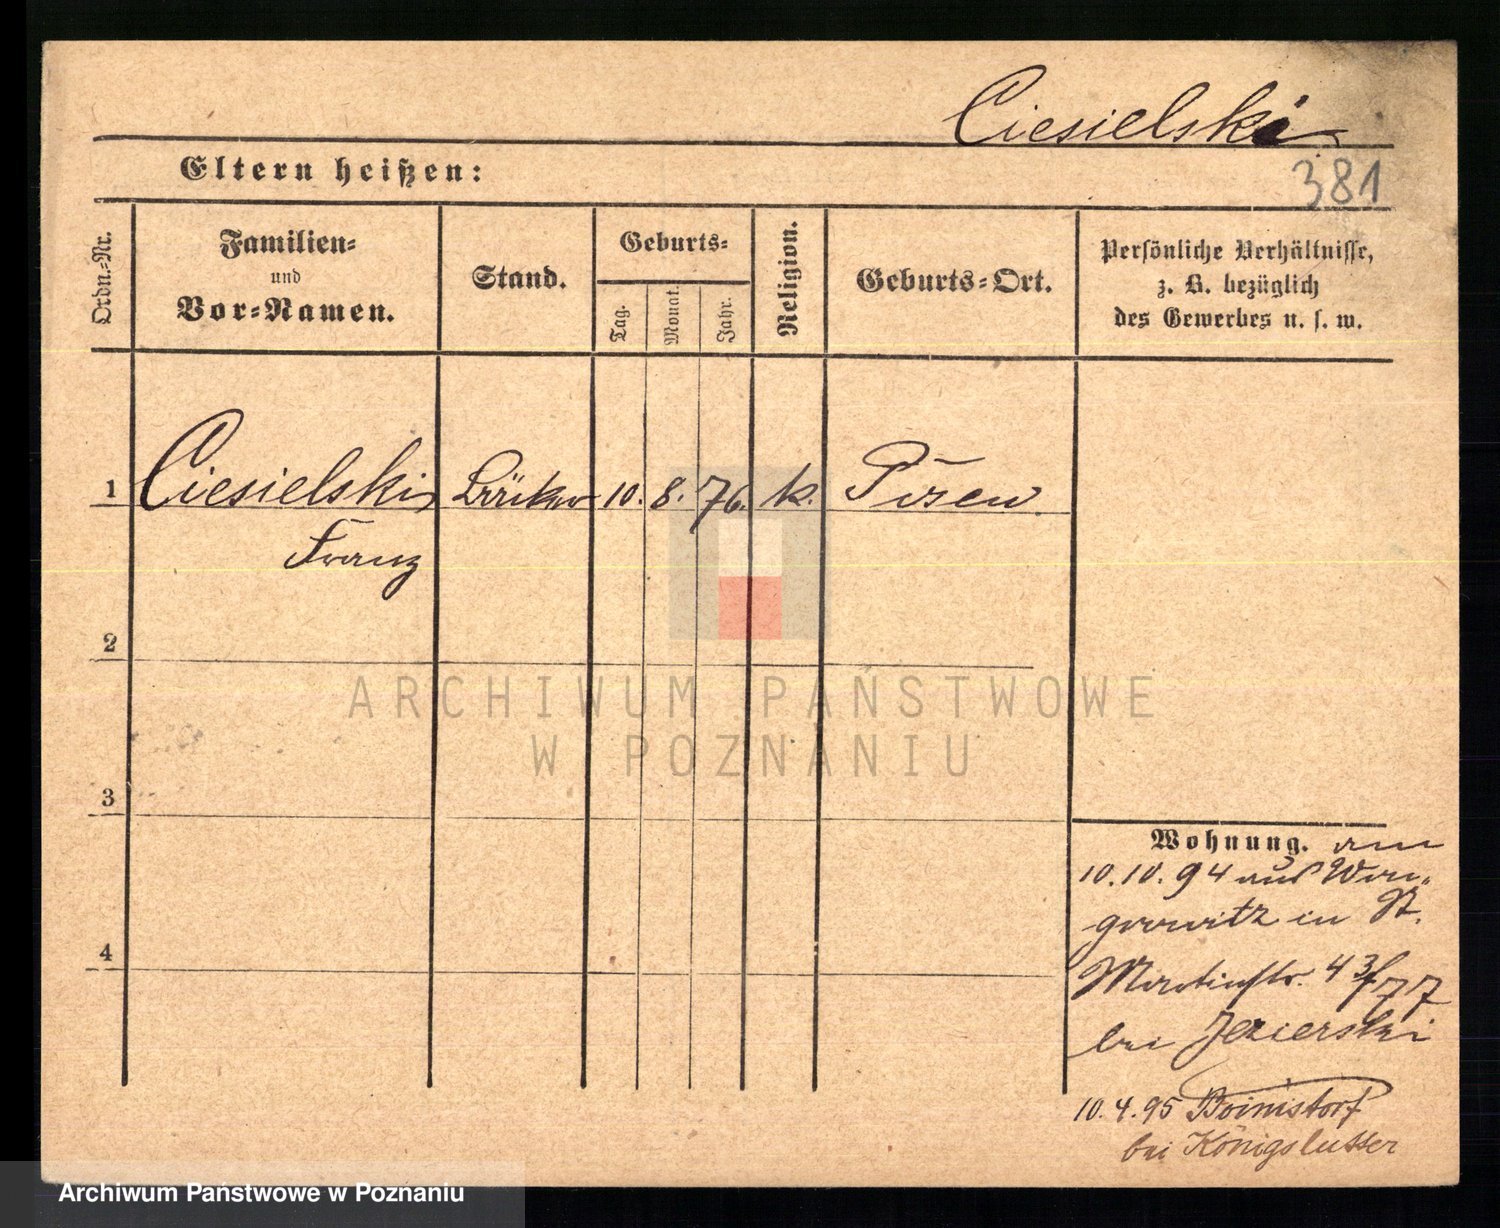 Ciesielski
381
Eltern heißen:
Ordn.-Nr.
Familien-
und
Vor-Namen.
Stand.
Geburts-
Tag.
Monat.
Jahr.
Religion.
Geburts-Ort.
Persönliche Verhältnisse,
z. B. bezüglich
des Gewerbes u. s. w.
1
Ciesielski
10.
8.
76.
k.
Franz
2
ARCHIWUM PAŃSTWOWE
W POZNANIU
3
Wohnung. am
10.10.94 aus Won-
growitz in St.
Martinstr. 43/77
bei Jezierski
4
10.4.95 Boimstorf
bei Königslutter
Archiwum Państwowe w Poznaniu